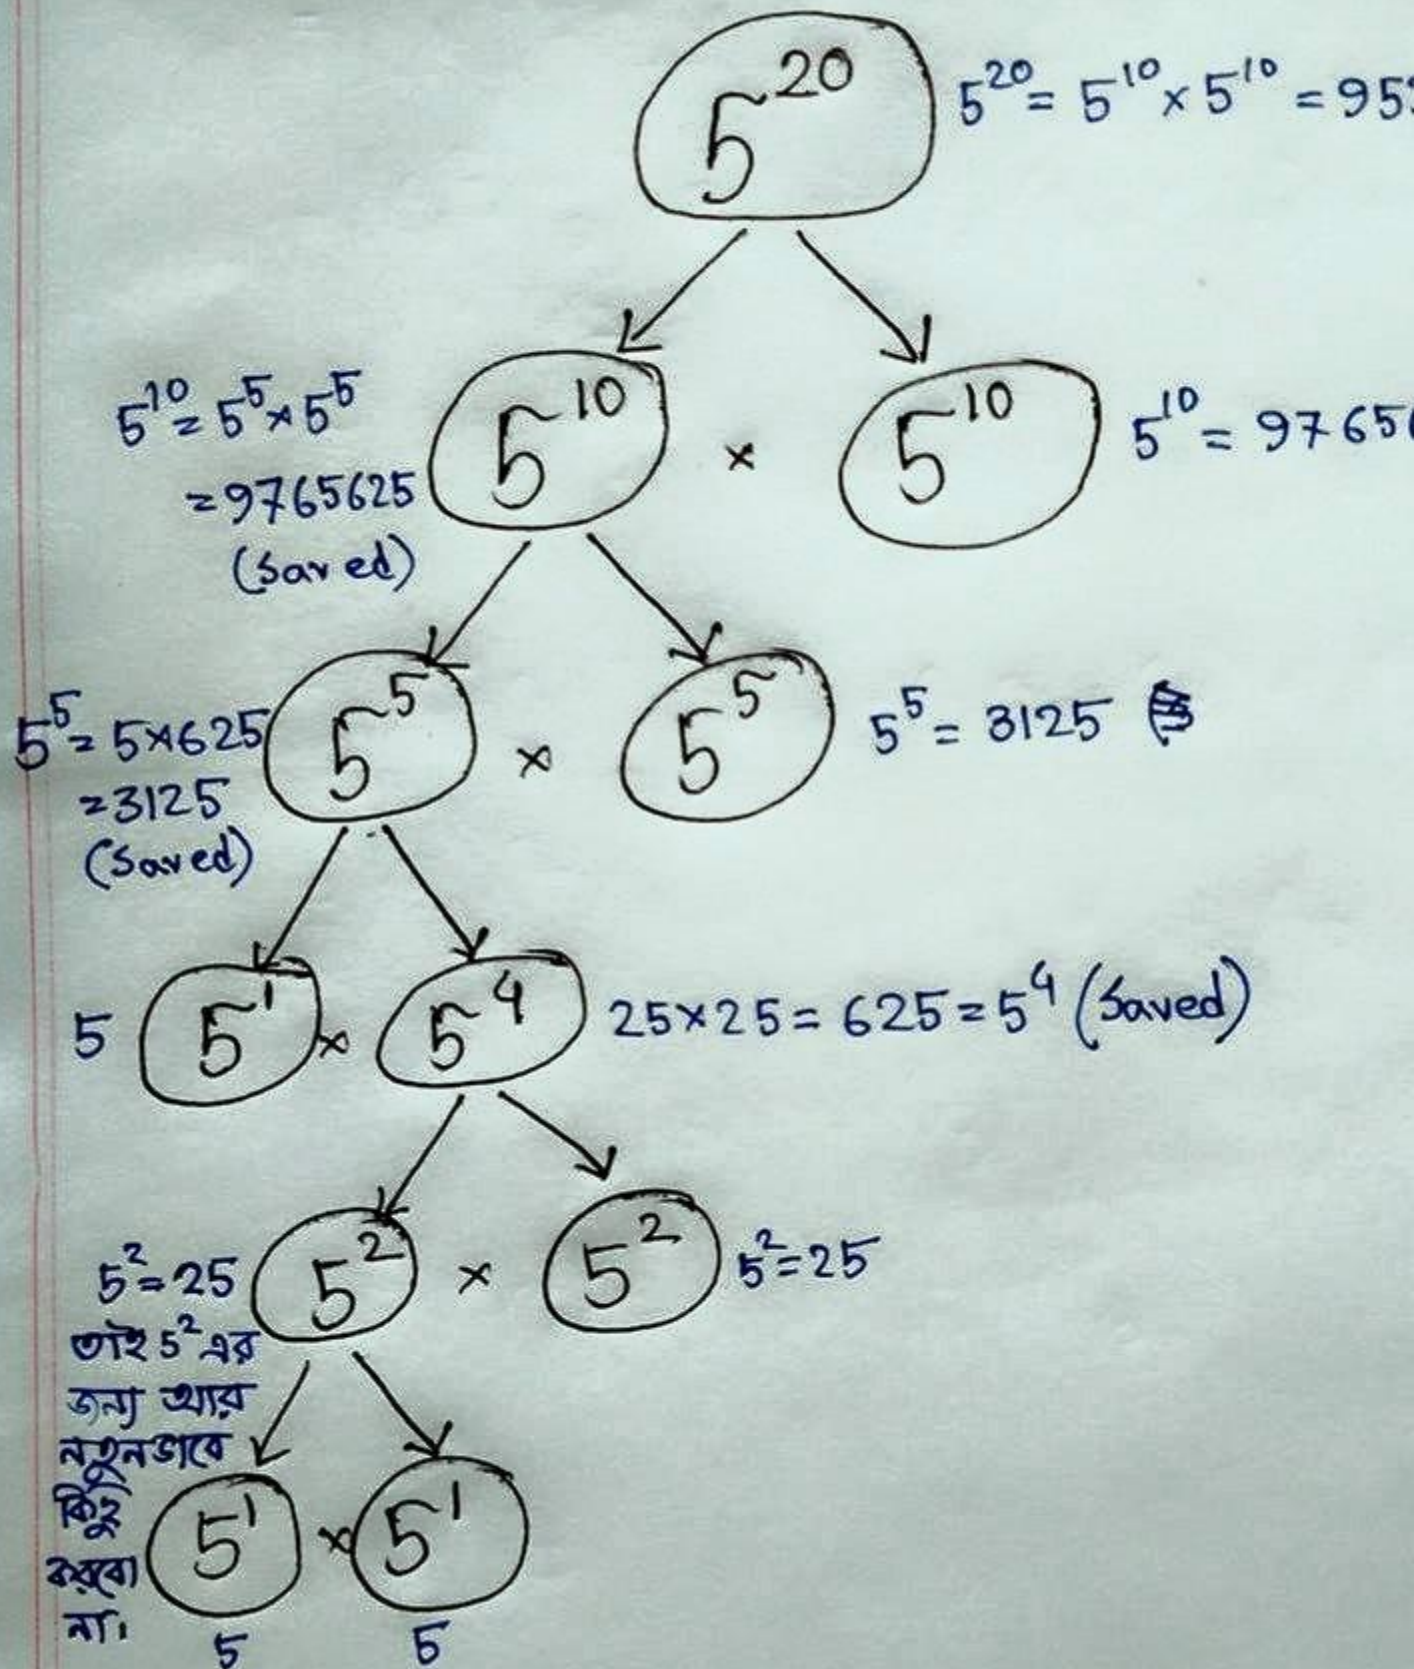 5^20
5^20 = 5^10 × 5^10 = 95
5^10 = 5^5 × 5^5
= 9765625
(Saved)
5^10 × 5^10
5^10 = 9765
5^5 = 5×625
= 3125
(Saved)
5^5 × 5^5
5^5 = 3125
5
5^1 × 5^4
25×25 = 625 = 5^4 (Saved)
5^2 = 25
5^2 × 5^2
5^2 = 25
তাই 5^2 এর
জন্য আর
নতুনভাবে
কিছু
করবো
না।
5^1 × 5^1
5 5